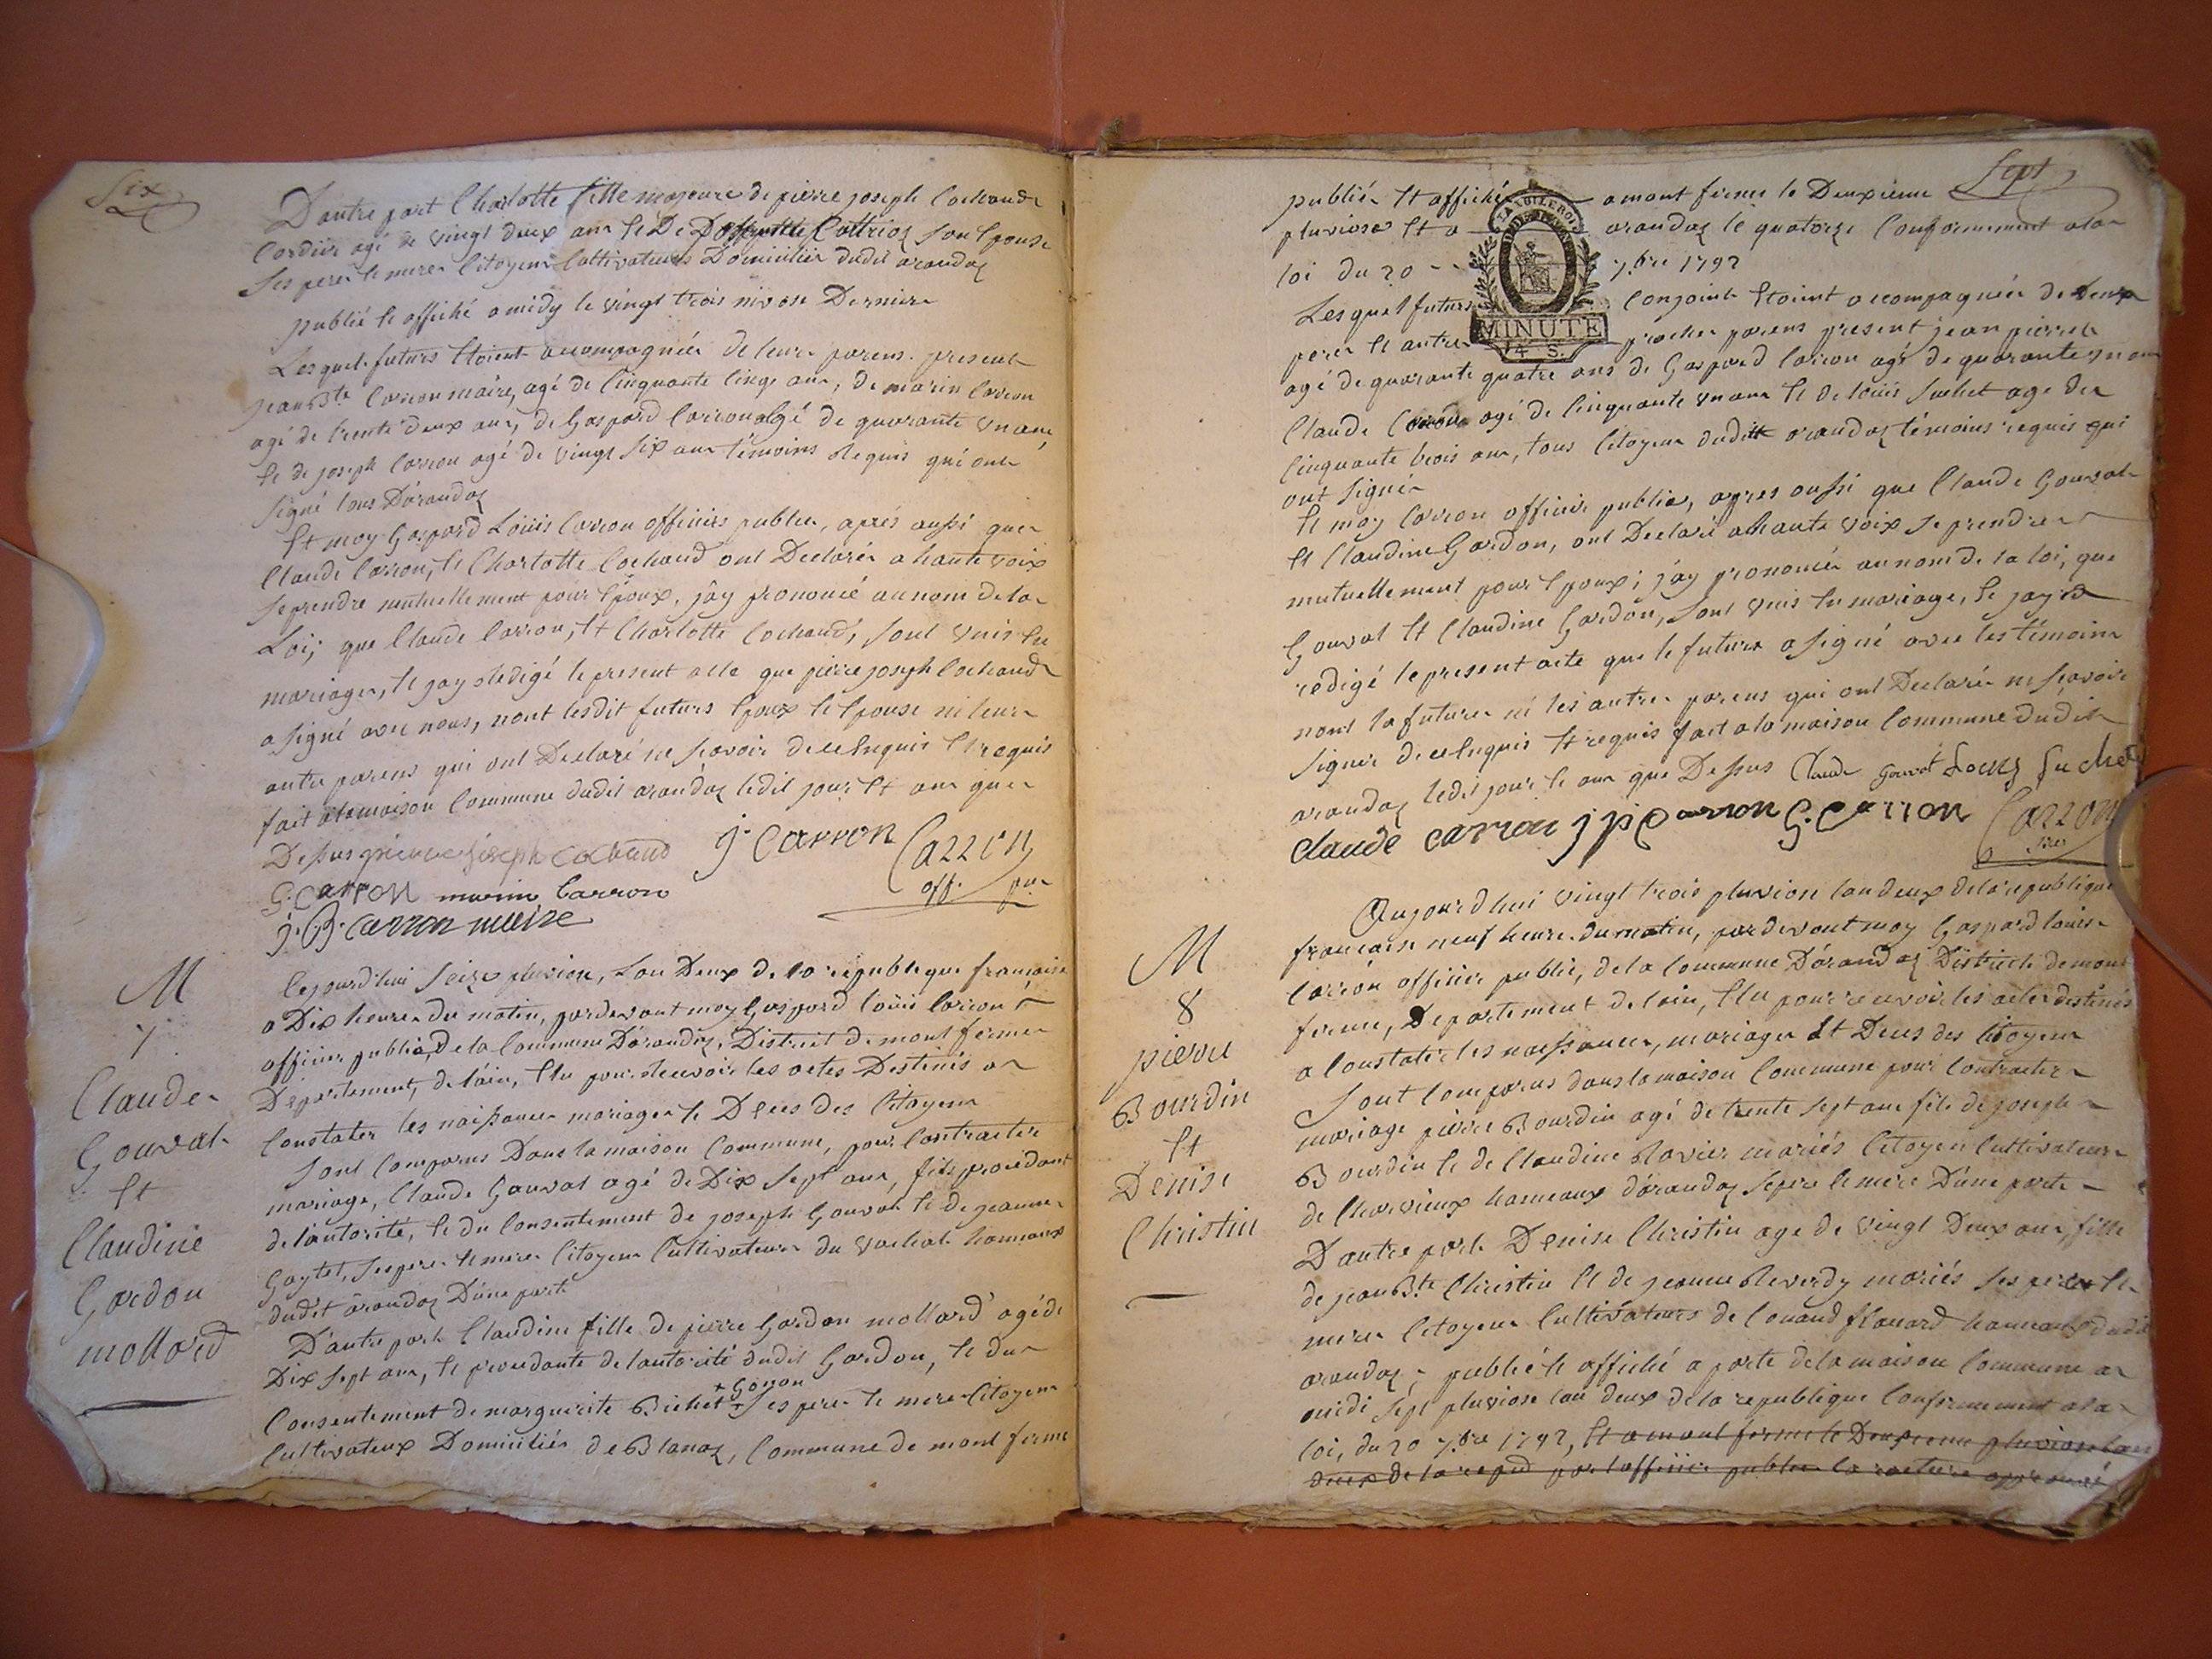 Six
D'autre part Charlotte fille majeure de pierre joseph Cochaud
Cordier agé de vingt deux ans et De Cottrioz son Epouse
Ses pere et mere Citoyens Cultivateurs Domicilier dudit arandaz
publié et affiché a midy le vingt trois nivose Dernier
Lesquels futurs Etoient accompagnée de leurs parens present
jean Bte Carron maire, agé de Cinquante Cinqs ans, de marin Carron
agé de trente deux ans, de Gaspard Carron agé de quarante un ans
et de joseph Carron agé de vingt Six ans témoins requis qui ont
signé tous D'arandaz
Et moy Gaspard Loüis Carron officier publier, aprés aussi que
Claude Carron, et Charlotte Cochaud ont Declarér a haute voix
se prendre mutuellement pour Epoux, j'ay prononcé au nom de la
Loi, que Claude Carron, et Charlotte Cochaud, sont unis En
mariager, et jay redigé le present acte que pierre joseph Cochaud
a signé avec nous, nont lesdit futurs Epoux et Epouse ni leurs
autre parens qui ont Declaré ne scavoir de ce Enquis et requis
fait a la maison Commune dudit arandaz ledit jour Et an que
Dessus pierre joseph cochaud j. Carron Carron
G. carron marin Carron off. pu.
j. B. carron maire
M
7
Claude
Gouvat
Et
Claudine
Gordon
mollard
Cejourd'hui Seize pluviose, L'an Deux de la république francaise
a Dix heures du matin, pardevant moy Gaspard Loüis Carron
officier public, de la Commune D'arandaz, District de mont ferme
Département, de l'ain, Elu pour recevoir les actes Destinés a
Constater les naissances mariager et Deces des Citoyens
Sont Comparus Dans la maison Commune, pour Contracter
mariage, Claude Gouvat agé de Dix Sept ans, fils procedant
de l'autorité, et du Consentement de joseph Gouvat et de jeanne
Gaytet, ses pere et mere Citoyens Cultivateurs du vachat hameaux
dudit arandaz D'une part
D'autre part Claudine fille de pierre Gordon mollard agé de
Dix Sept ans, et procedante de l'autorité dudit Gordon, et du
+ Gonon
Consentement de marguerite Bichet + Ses pere et mere Citoyens
Cultivateux Domiciliés de Blanaz, Commune de mont ferme
Sept
publiér Et affichée a mont ferme le Deuxieme
pluviose Et a arandaz le quatorze Conformement a la
loi du 20 7.bre 1792
LA LOI LE ROI
MINUTE
4 S.
Lesquel futurs Conjoint Etoient accompagnée de leur
perer Et autres procher parens present jean pierre
agé de quarante quatre ans de Gaspard Carron agé de quarante un ans
Claude Carron agé de Cinquante un ans Et de Loüis Suchet age de
Cinquante trois ans, tous Citoyens dudit arandaz témoins requis qui
ont signér
Et moy Carron officier public, apres aussi que Claude Gouvat
Et Claudine Gordon, ont Declaré a haute voix se prendre
mutuellement pour Epoux; j'ay prononcér au nom de la loi, que
Gouvat Et Claudine Gordon, sont unis En mariage, Et jay
redigé le present acte que le futur a signé avec les témoins
nont la future ni les autres parens qui ont Declarér ne scavoir
signer de ce Enquis Et requis fait a la maison Commune dudit
arandaz ledit jour et an que Dessus Claude gouvat Louis Suchet
claude carron j p Carron G. Carron Carron
M
8
pierre
Bourdin
Et
Denise
Christin
Aujourdhui vingt trois pluviose lan deux de la republique
francaise neuf heures du matin, pardevant moy Gaspard Louis
Carron officier public, de la Commune D'arandaz District de mont
ferme, Departement de lain, Elu pour recevoir les actes destinés
a Constater les naissances, mariager Et Deces des Citoyens
Sont Comparus dans la maison Commune pour Contracter
mariage pierre Bourdin agé de trente Sept ans fils de joseph
Bourdin Et de Claudine Ravier mariés Citoyen Cultivateurs
de Charvieux hameaux d'arandaz Ses pere et mere D'une parte
D'autre part Denise Christin age de vingt Deux ans, fille
de jean Bte Christin Et de jeanne Reverdy mariés Ses pere Et
mere Citoyens Cultivateurs de hameaux dudit
arandaz, publié et affiché a porte de la maison Commune a
midi Sept pluviose lan deux de la republique Conformement a la
loi, du 20 7.bre 1792, Et a mont ferme le Deuxieme pluviose lan
deux de la repub par lofficier publier la rature approuvé